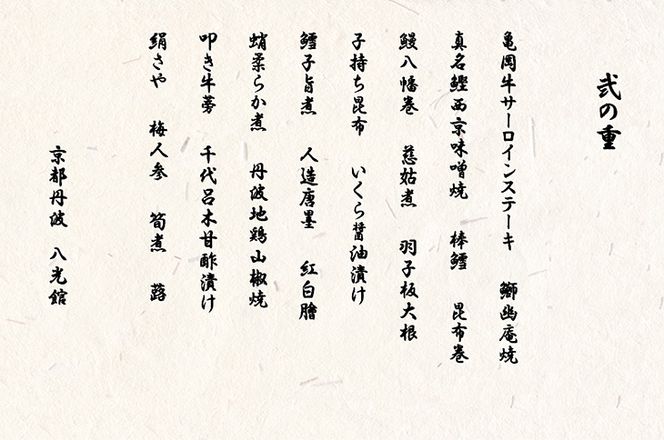 弐の重
亀岡牛サーロインステーキ 鰤幽庵焼
真名鰹西京味噌焼 棒鱈 昆布巻
鰻八幡巻 慈姑煮 羽子板大根
子持ち昆布 いくら醤油漬け
鱈子旨煮 人造唐墨 紅白膾
蛸柔らか煮 丹波地鶏山椒焼
叩き牛蒡 千代呂木甘酢漬け
絹さや 梅人参 筍煮 蕗
京都丹波 八光館